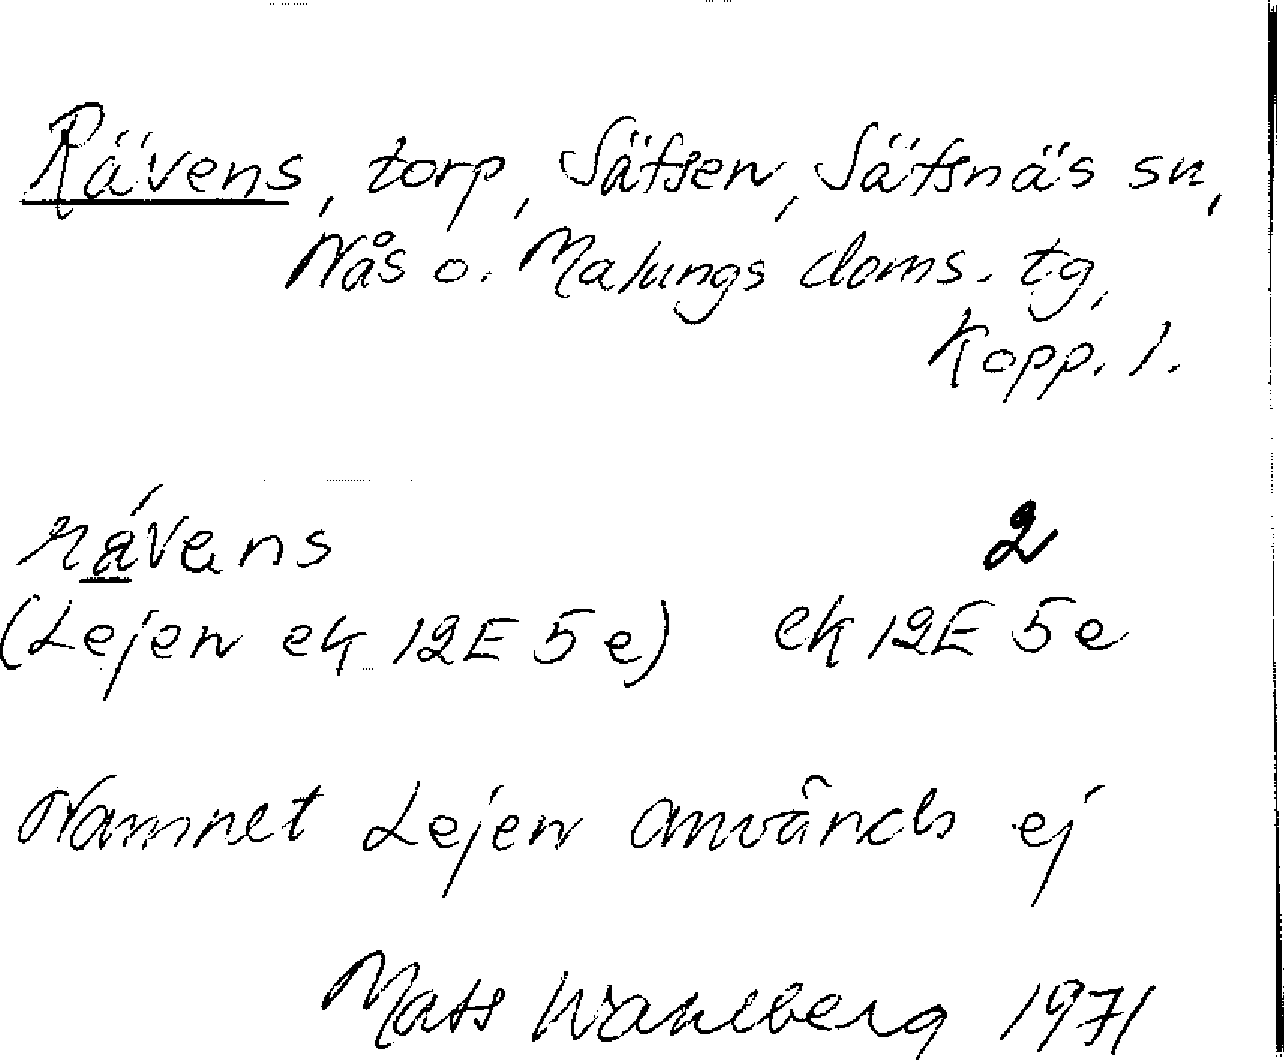 Rävens, torp, Sätsen, Sätsnäs sn,
Nås o. Malungs doms. tg,
Kopp. l.
rávens 2
(Lejen ek 12E 5e) ek 12E 5e
Namnet Lejen används ej
Mats Wahlberg 1971